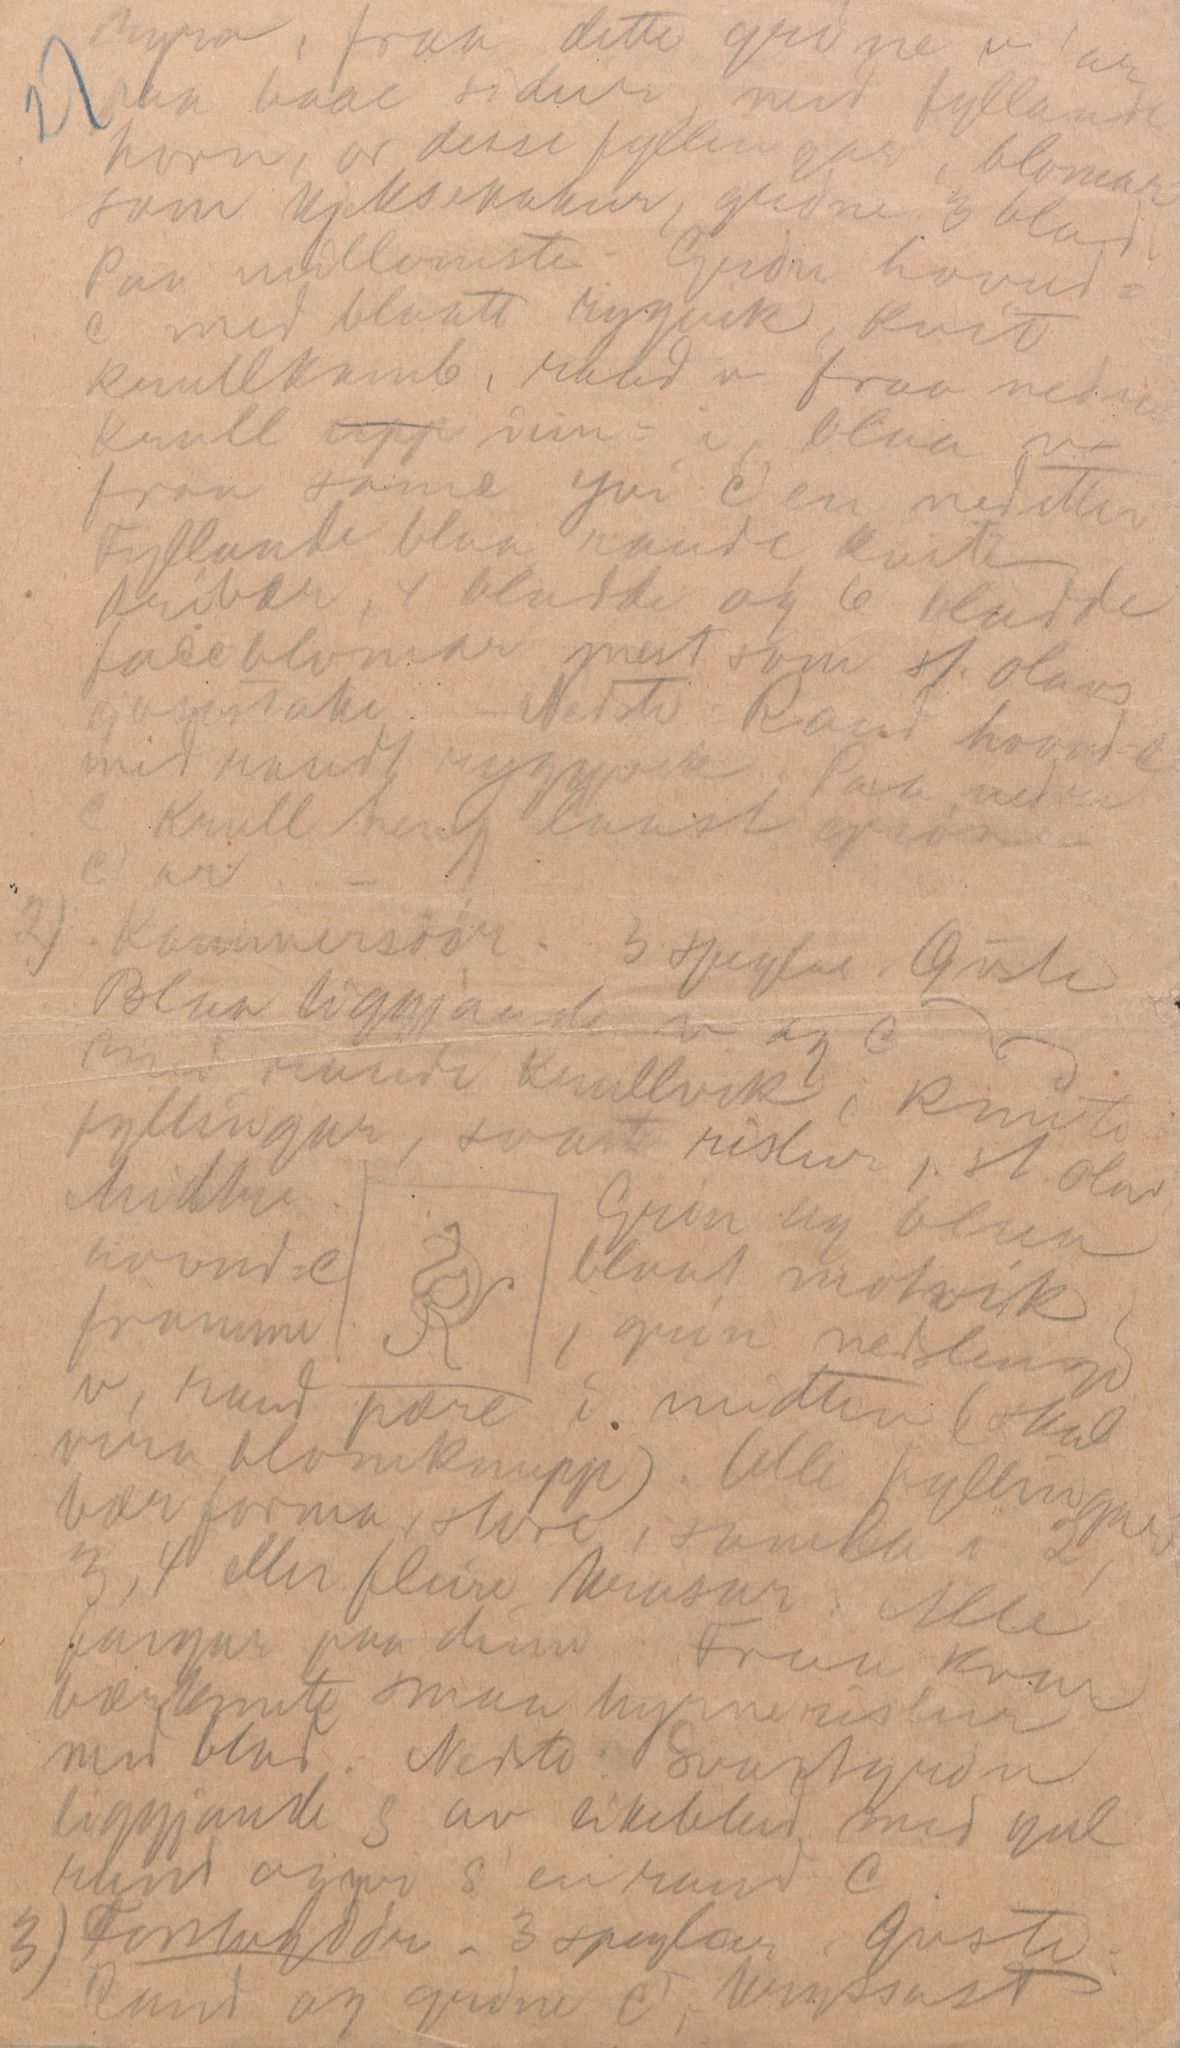 hyro, fraa dette grøne v'ar
paa baae sidur, med fyllande
horn, or desse fyllingar, blomar
som kjeksekakur, grøne 3 blad.
Paa midlomste - Grøn hovud=
C med blaatt rygvik, kvit
krullkamb, raud v fraa nedre
krull upp i, blaa v
fraa same yvi C'en nedetter
Fyllande blaa raude kvite
tribær, 4 bladde og 6 bladde
faceblomar mest som st. olavs
- Nedste: Raud hovud-C
med raudt ryggvik. Paa nedra
C krull heng laust grøn-
C'ar. -
2) Kammersdør. 3 speglar. Øvste
Blaa liggjande v og C
med raude krullvik, knute
fyllingar, svarte ristur, st olav
Midtre. Grøn og blaa
hovud=C blaat motvik,
framme, grøn nedslengd
v, raud pære i midten (skal
vera blomknupp). Alle fyllingar
bærforma, store, samla i 2,
3, 4 eller fleire krusar. Alle
fargar paa deim. Fraa kvar
bærknute smaa hyrneristur
med blad. Nedste: Svartgrøn
liggjande S av eikeblad med gul
rand og yvi S'en raud C
3) Forstugdør - 3 speglar. Øvste:
Raud og grøne C,